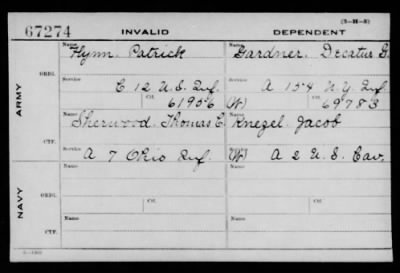 67274 INVALID DEPENDENT (3-31-3)
Name Flynn, Patrick Name Gardner, Decatur G.
ARMY ORIG. Service C 12 U.S. Inf. Service A 154 N.Y. Inf.
Ctf. 61956 (W) Ctf. 69783
CTF. Name Sherwood, Thomas C. Name Knezel, Jacob
Service A 7 Ohio Inf. Service (W) A 2 U.S. Cav.
NAVY ORIG. Name Ctf. Name Ctf.
CTF. Name Name